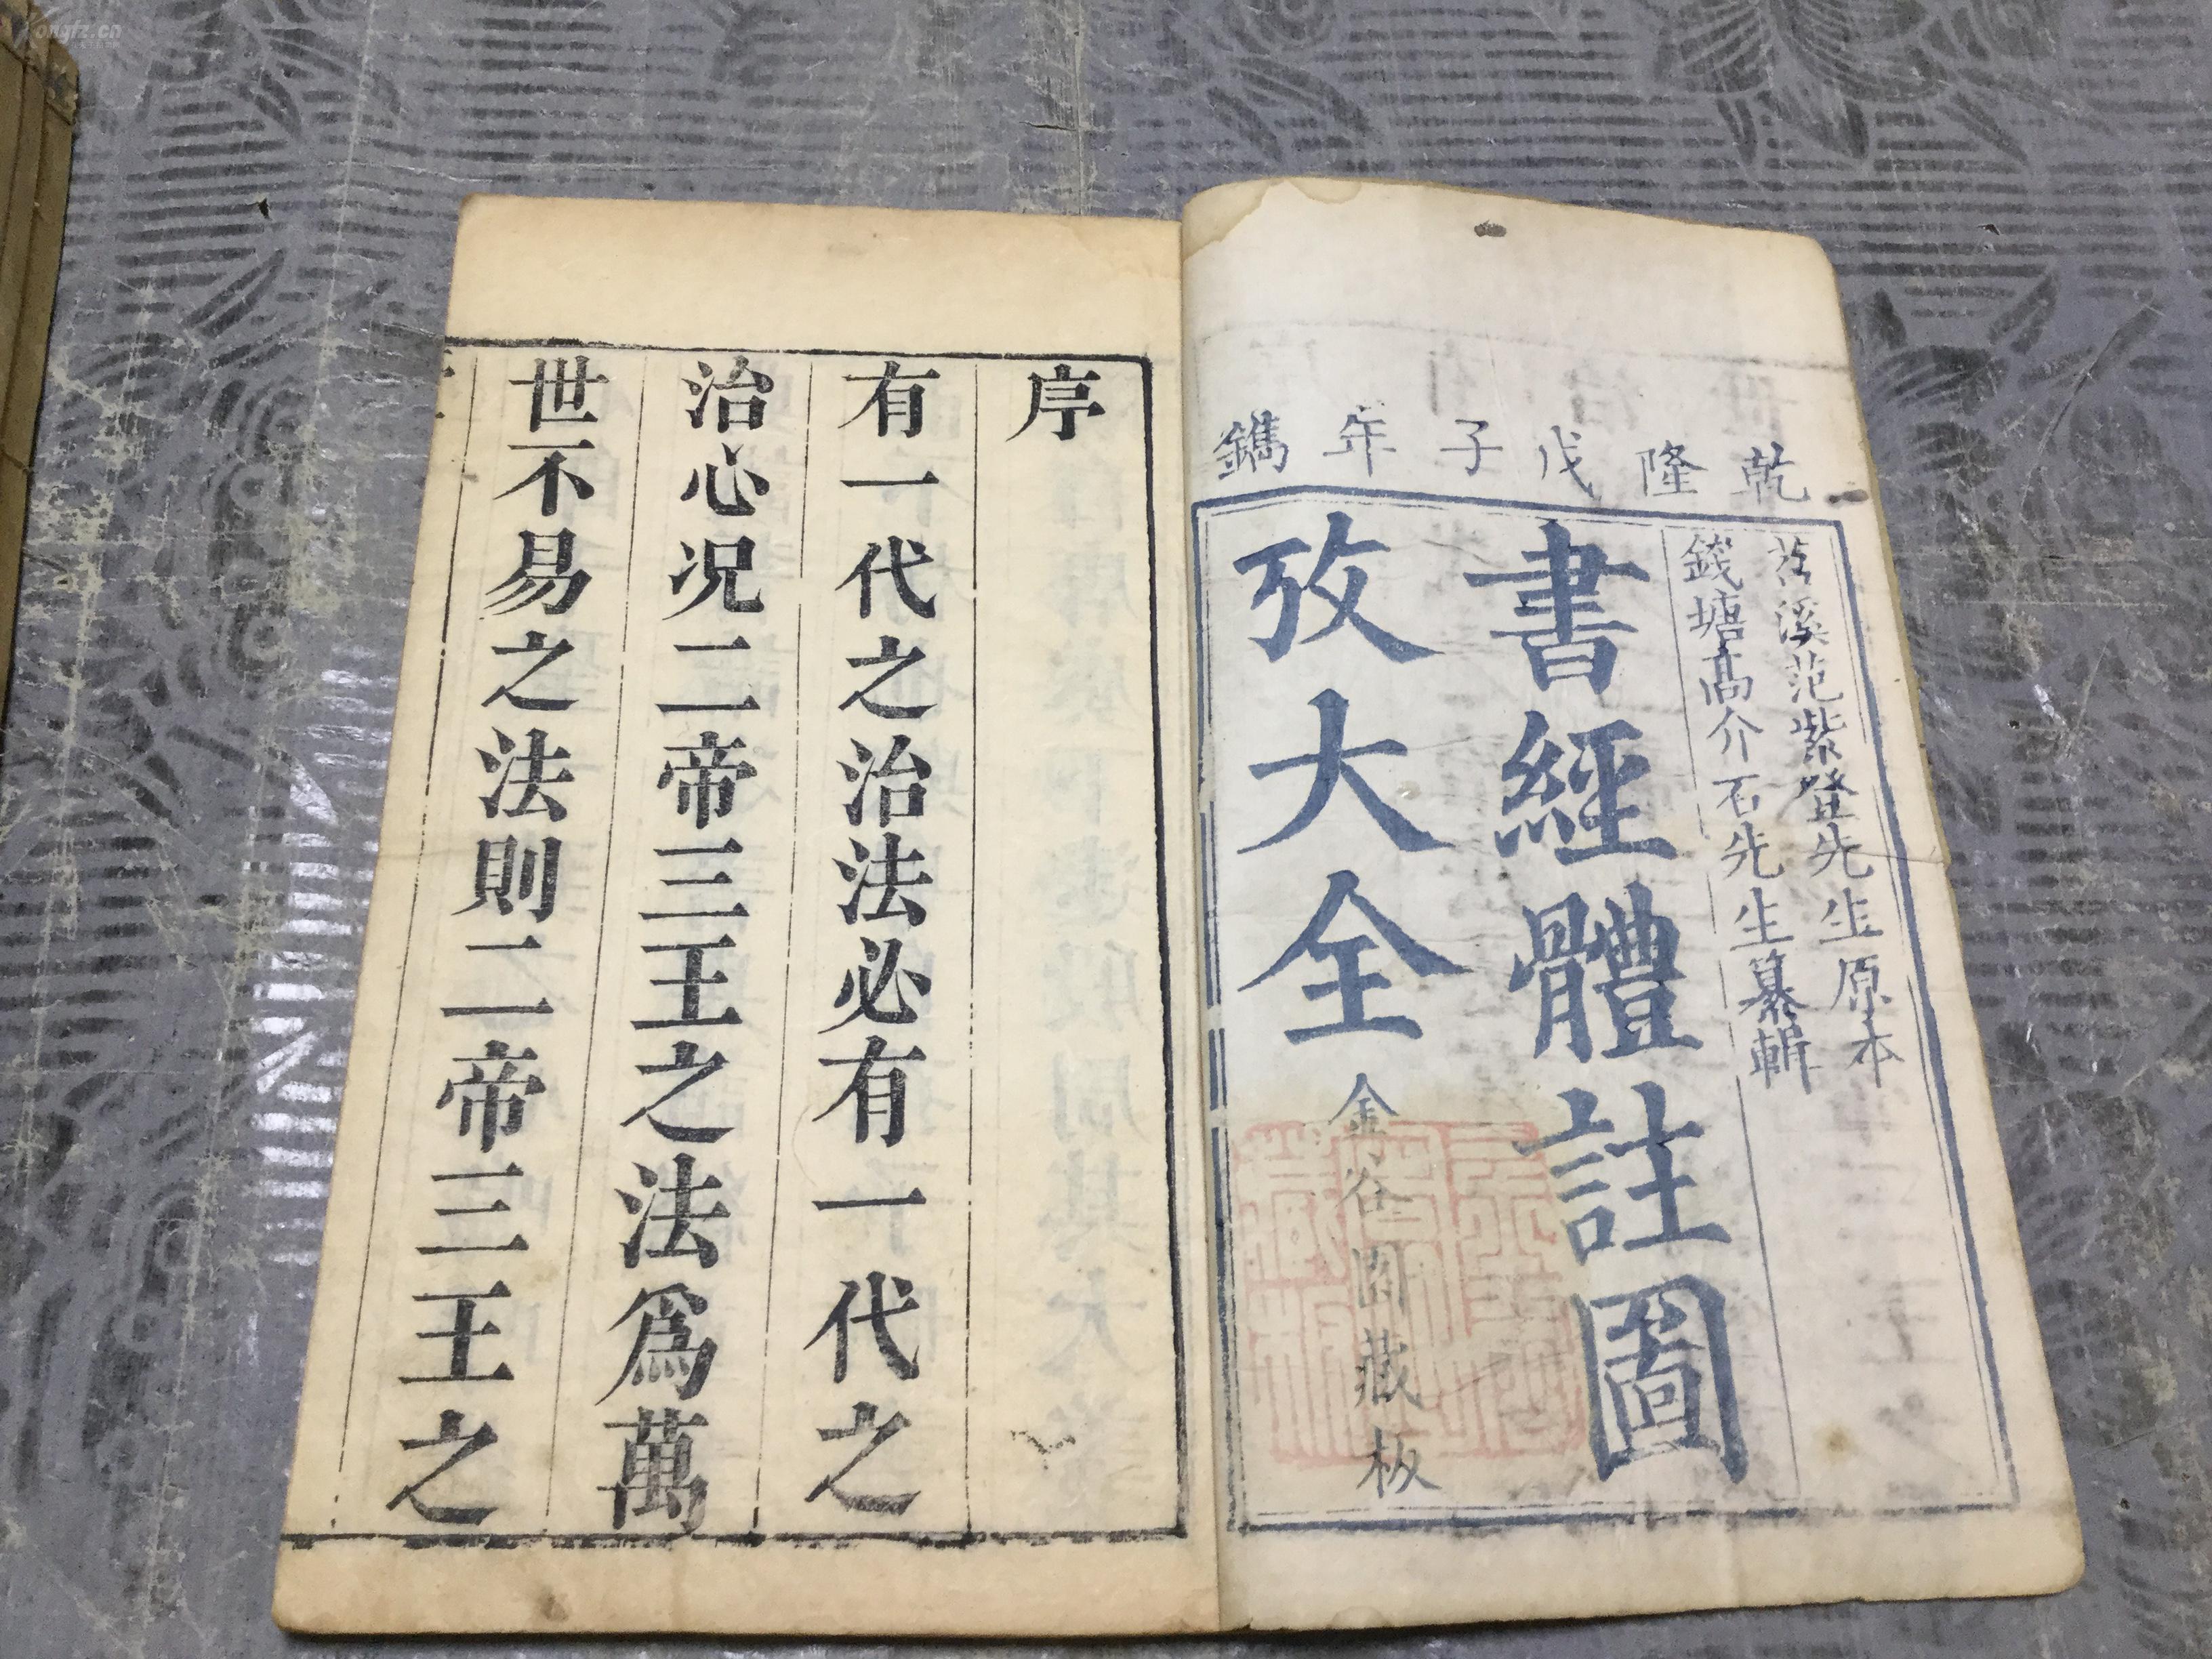 乾隆戊子年鐫
苕溪范紫登先生原本
錢塘高介石先生纂輯
書經體註圖
攷大全
金谷園藏板
序
有一代之治法必有一代之
治心况二帝三王之法爲萬
世不易之法則二帝三王之